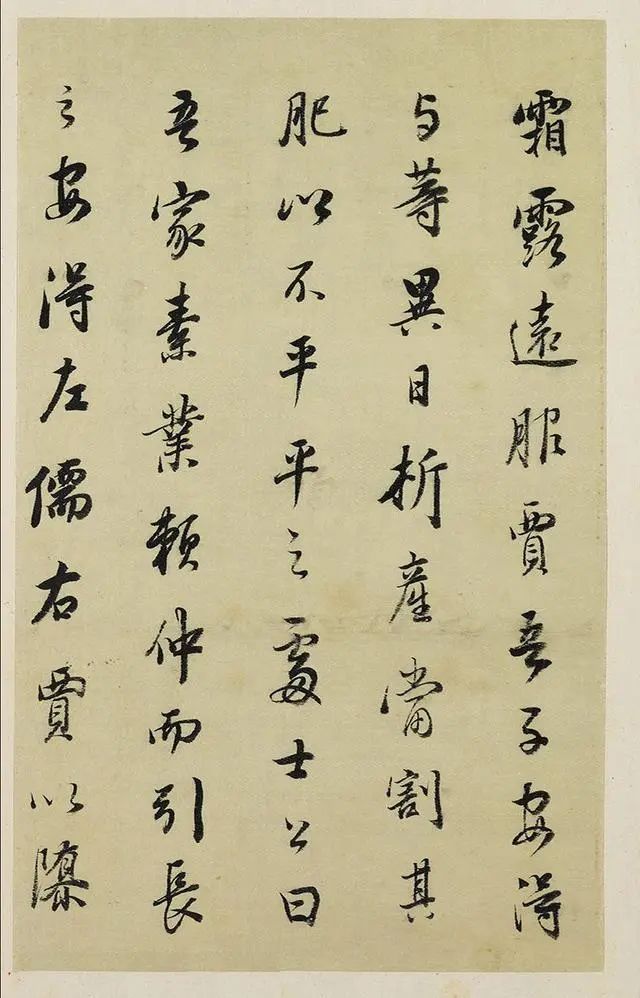 霜露遠服賈吾子安得
与等異日析產當割其
肥以不平平之處士公曰
吾家素業賴仲而引長
之安得左儒右賈以隳